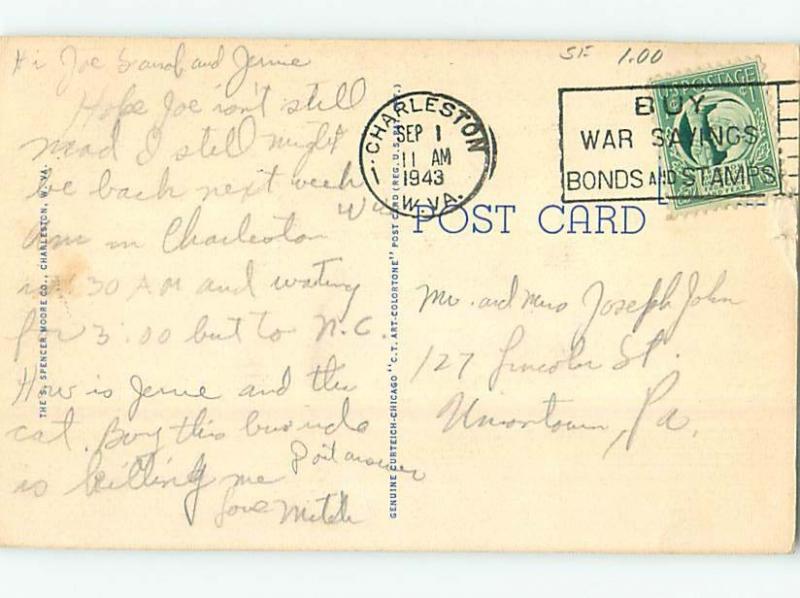 SF 1.00
Hi Joe Sarah and Jennie
Hope Joe isn't still
mad I still might
be back next week
W Va
am in Charleston
30 AM and waiting
for 3:00 but to N.C.
How is Jennie and the
cat. Boy this bus ride
is killing me
Love Mitch
THE S. SPENCER MOORE CO., CHARLESTON, W. VA.
GENUINE CURTEICH-CHICAGO "C.T. ART-COLORTONE" POST CARD (REG. U.S. PAT. OFF.)
CHARLESTON
SEP 1
11 AM
1943
W. VA.
BUY
WAR SAVINGS
BONDS AND STAMPS
U.S. POSTAGE
1¢
POST CARD
Mr. and Mrs Joseph John
127 Lincoln St.
Uniontown, Pa.